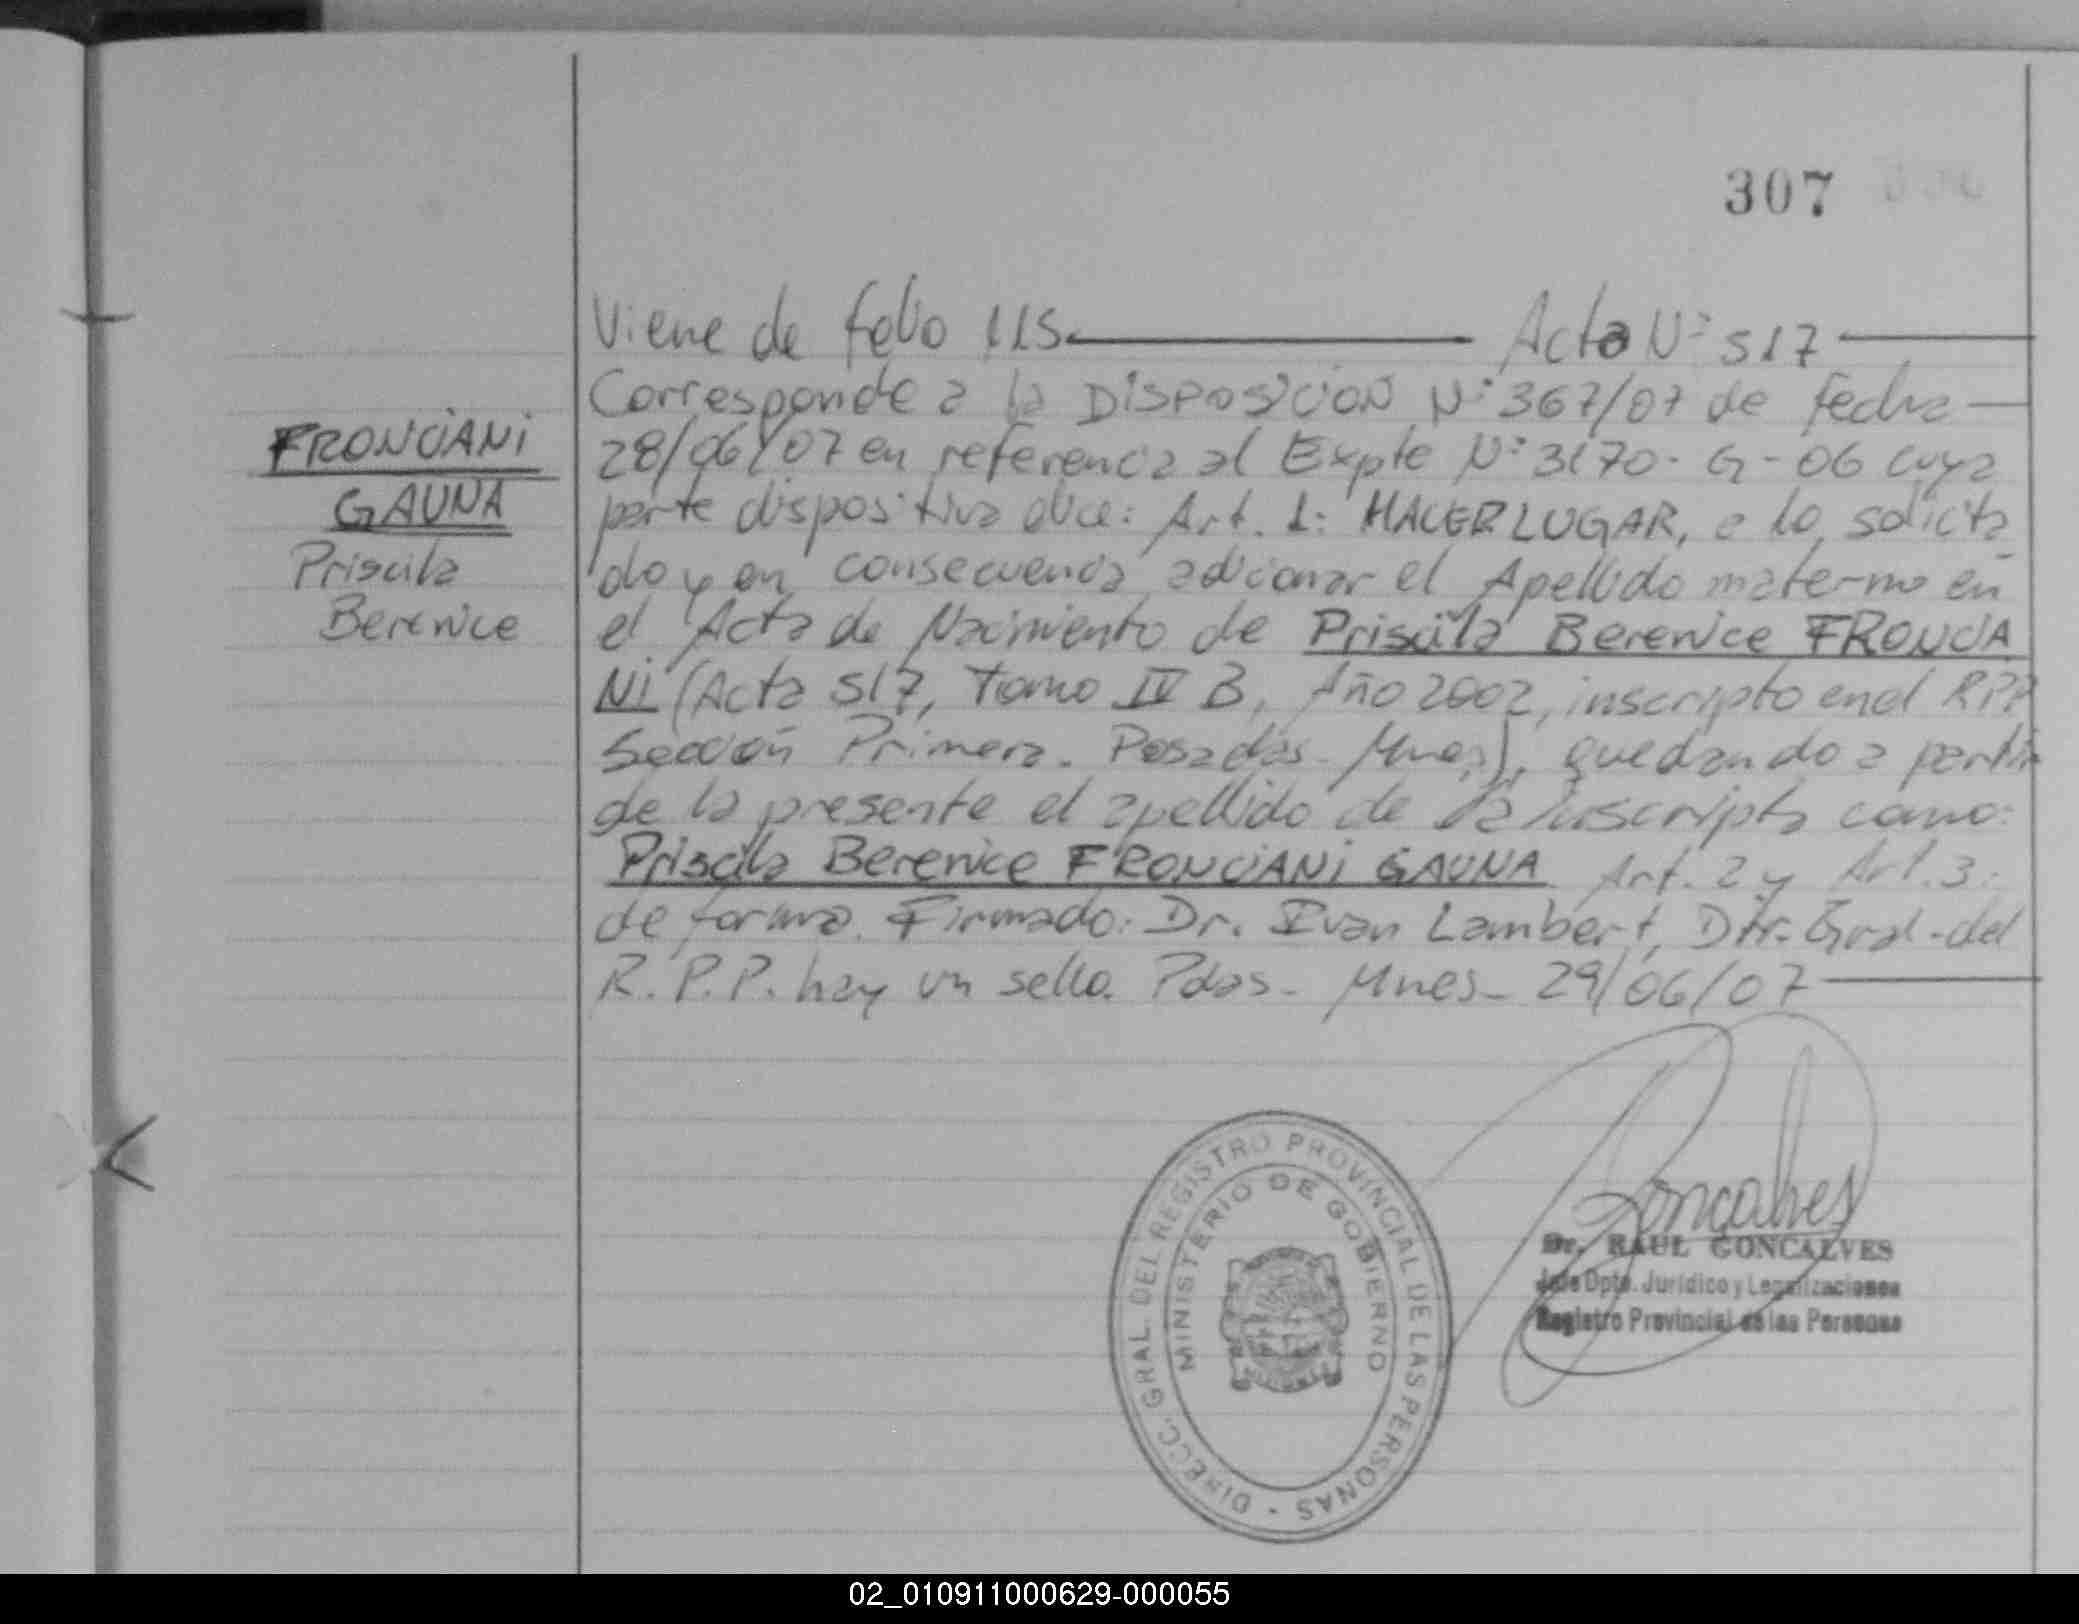 307
Viene de folio 115 Acta N° 517
Corresponde a la DISPOSICION N° 367/07 de fecha
28/06/07 en referencia al Expte N° 3170-G-06 cuya
parte dispositiva dice: Art. 1: HACER LUGAR, a lo solicita
do y en consecuencia adicionar el Apellido materno en
el Acta de Nacimiento de Priscila Berenice FRONCIA
NI (Acta 517, Tomo IV B, Año 2002, inscripto en el RPP
Sección Primera. Posadas - Mnes), quedando a partir
de la presente el apellido de la inscripta como:
Priscila Berenice FRONCIANI GAUNA. Art. 2 y Art. 3:
de forma. Firmado: Dr. Ivan Lambert, Dir. Gral. del
R.P.P. hay un sello. Pdas - Mnes - 29/06/07
FRONCIANI
GAUNA
Priscila
Berenice
DIRECC. GRAL. DEL REGISTRO PROVINCIAL DE LAS PERSONAS -
MINISTERIO DE GOBIERNO
Goncalves
Dr. RAUL GONCALVES
Jefe Dpto. Jurídico y Legalizaciones
Registro Provincial de las Personas
02_010911000629-000055